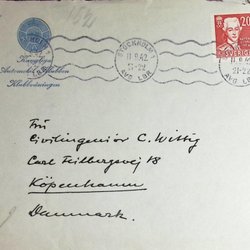 Kungliga
Automobil Klubben
Klubbvåningen
STOCKHOLM 1
11.9.42
21-22
AVG LBR
20
SVERIGE
Fru
Civilingeniör C. Wittig
Carl Feilbergsvej 18
Köpenhamn
Danmark.